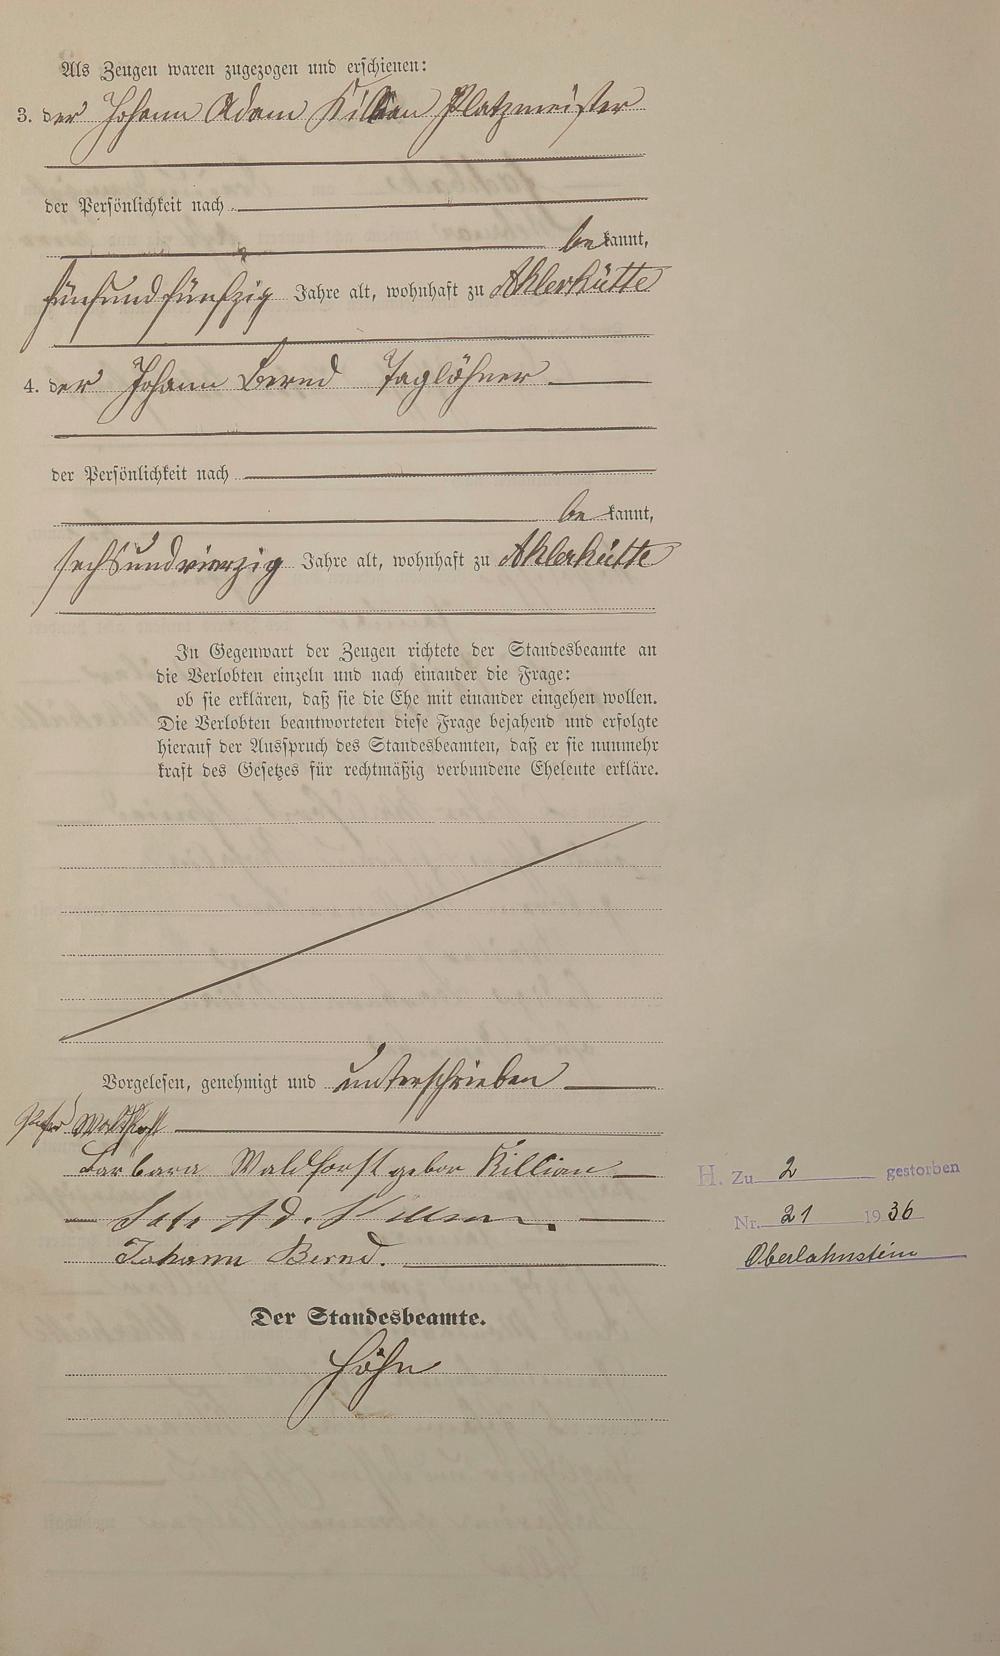 Als Zeugen waren zugezogen und erschienen:
3. der Johann Adam Killian Platzmeister
der Persönlichkeit nach
be kannt,
fünfundfünfzig Jahre alt, wohnhaft zu Ahlerhütte
4. der Johann Bernd Taglöhner
der Persönlichkeit nach
be kannt,
sechsundvierzig Jahre alt, wohnhaft zu Ahlerhütte
In Gegenwart der Zeugen richtete der Standesbeamte an
die Verlobten einzeln und nach einander die Frage:
ob sie erklären, daß sie die Ehe mit einander eingehen wollen.
Die Verlobten beantworteten diese Frage bejahend und erfolgte
hierauf der Ausspruch des Standesbeamten, daß er sie nunmehr
kraft des Gesetzes für rechtmäßig verbundene Eheleute erkläre.
Vorgelesen, genehmigt und unterschrieben
Peter Waldforst
Barbara Waldforst gebor Killian
Ad. Killian
Johann Bernd.
H. Zu 2 gestorben
Nr. 21 1936
Oberlahnstein
Der Standesbeamte.
Höhn